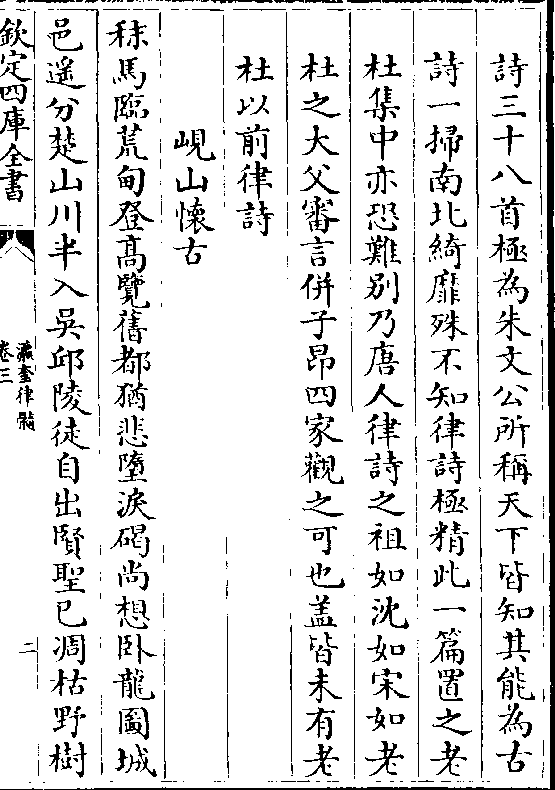 詩三十八首極為朱文公所稱天下皆知其能為古
詩一掃南北綺靡殊不知律詩極精此一篇置之老
杜集中亦恐難别乃唐人律詩之祖如沈如宋如老
杜之大父審言併子昂四家觀之可也盖皆未有老
杜以前律詩
峴山懷古
秣馬臨荒甸登髙覽舊都猶悲墮淚碣尚想卧龍圖城
邑遥分楚山川半入吳邱陵徒自出賢聖已凋枯野樹
欽定四庫全書
瀛奎律髓
卷三
二